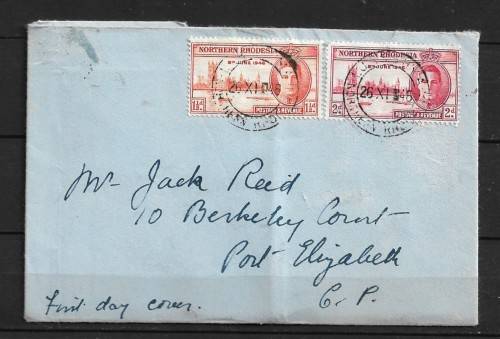 NORTHERN RHODESIA
8TH JUNE 1946
1½d
POSTAGE & REVENUE
1½d
NORTHERN RHODESIA
8TH JUNE 1946
2d
POSTAGE & REVENUE
2d
26 XI 46
26 XI 46
Mr Jack Reid
10 Berkeley Court
Port Elizabeth
C. P.
First day cover.